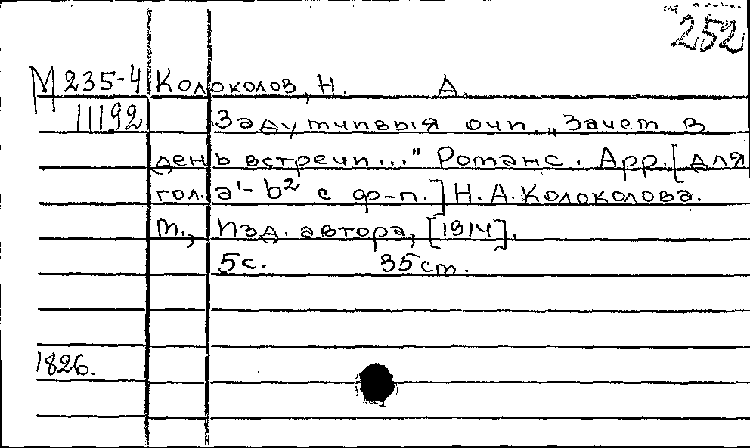 252
М 235-4 Колоколов, Н. А.
11192 Задумчивыя очи. „Зачем в
день встречи..." Романс. Арр. [для
гол. a¹-b² с ф-п.] Н. А. Колоколова.
М., Изд. автора, [1914].
5с. 35 см.
1826.